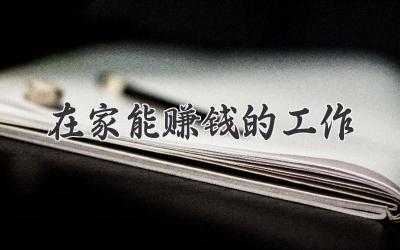 在家能赚钱的工作